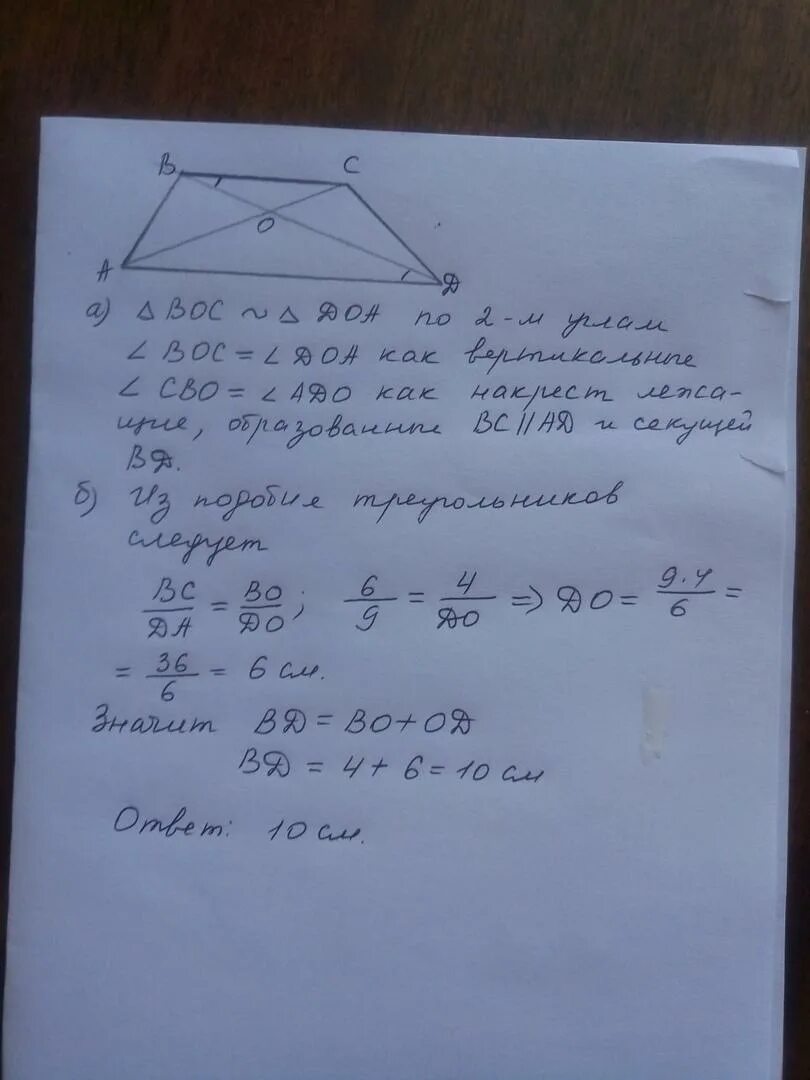 B C
O
A D
а) △ BOC ~ △ DOA по 2-м углам
∠ BOC = ∠ DOA как вертикальные
∠ CBO = ∠ ADO как накрест лежа-
щие, образованные BC || AD и секущей
BD.
б) Из подобия треугольников
следует
BC/DA = BO/DO; 6/9 = 4/DO => DO = 9·4/6 =
= 36/6 = 6 см.
Значит BD = BO + OD
BD = 4 + 6 = 10 см
Ответ: 10 см.